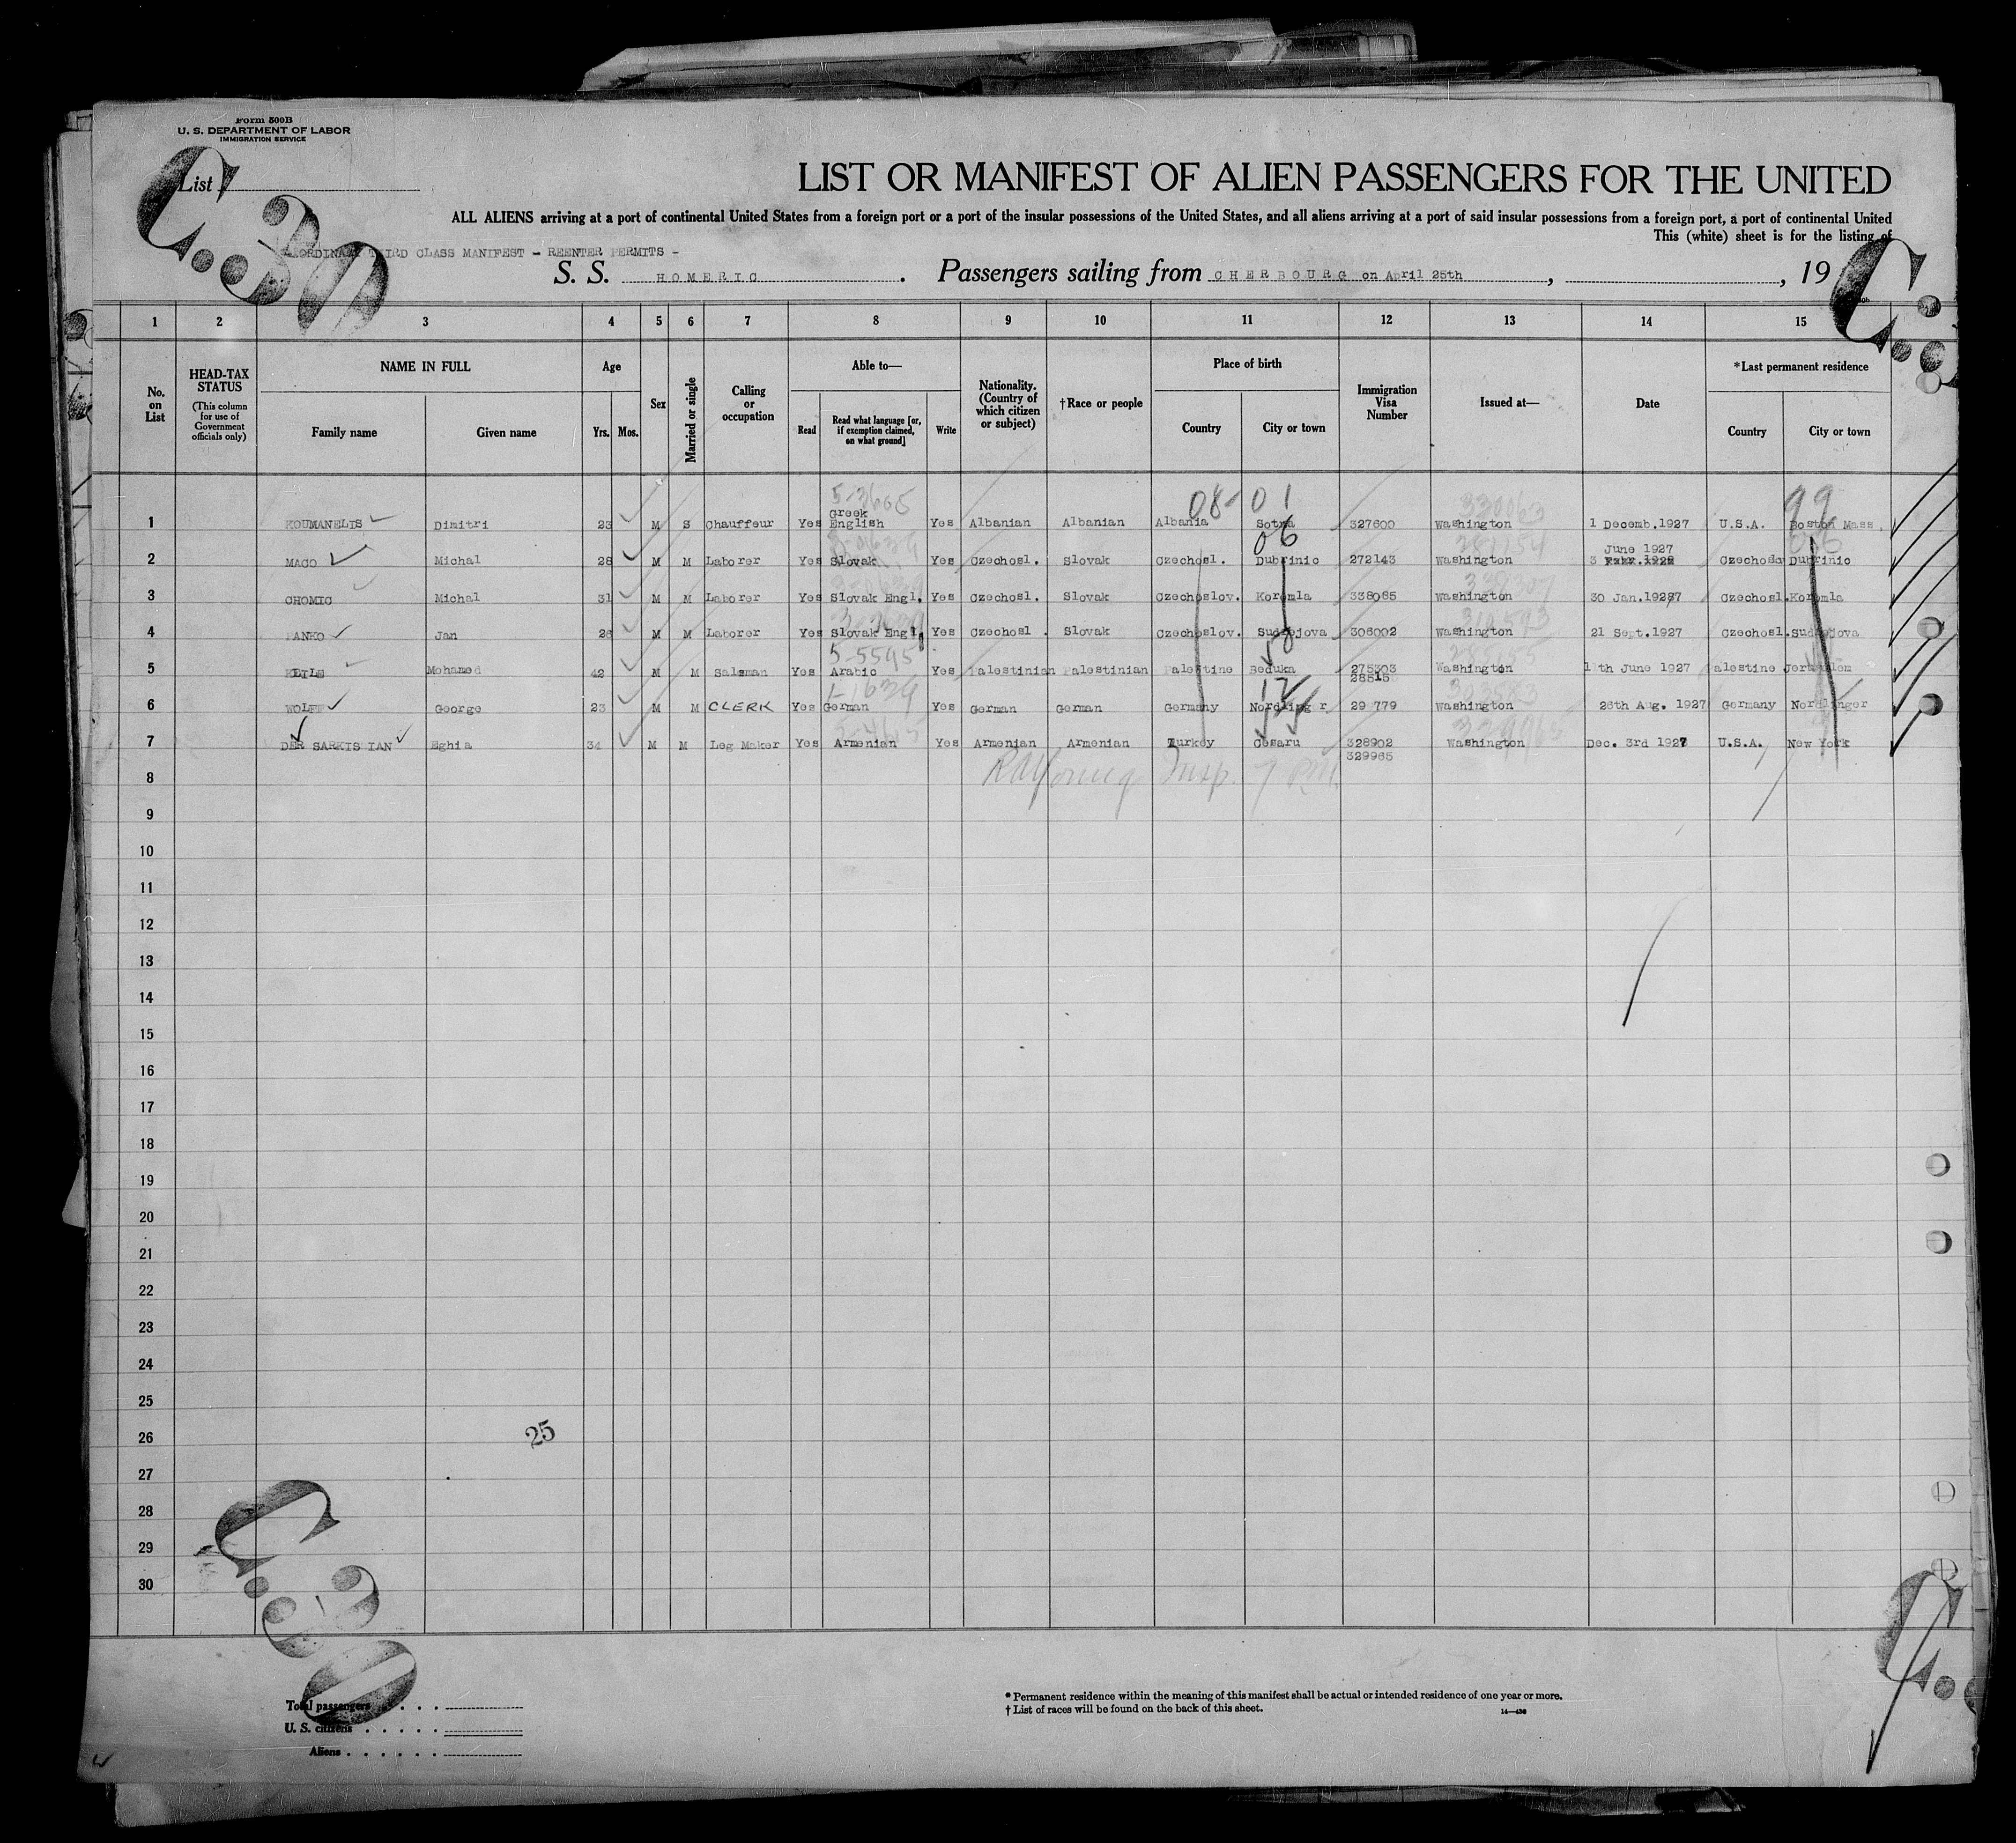 Form 500B
U. S. DEPARTMENT OF LABOR
IMMIGRATION SERVICE
List
C.30
LIST OR MANIFEST OF ALIEN PASSENGERS FOR THE UNITED
ALL ALIENS arriving at a port of continental United States from a foreign port or a port of the insular possessions of the United States, and all aliens arriving at a port of said insular possessions from a foreign port, a port of continental United
This (white) sheet is for the listing of
THIRD CLASS MANIFEST - REENTER PERMITS -
S. S. HOMERIC . Passengers sailing from CHERBOURG on April 25th , , 19
1 2 3 4 5 6 7 8 9 10 11 12 13 14 15
No. on List
HEAD-TAX STATUS
(This column for use of Government officials only)
NAME IN FULL
Family name Given name
Age
Yrs. Mos.
Sex
Married or single
Calling or occupation
Able to—
Read Read what language [or, if exemption claimed, on what ground] Write
Nationality. (Country of which citizen or subject)
†Race or people
Place of birth
Country City or town
Immigration Visa Number
Issued at—
Date
*Last permanent residence
Country City or town
5-3665 08-01 330063 99
1 KOUMANELIS Dimitri 23 M S Chauffeur Yes Greek English Yes Albanian Albanian Albania Sotna 327600 Washington 1 Decemb.1927 U.S.A. Boston Mass.
06
2 MACO Michal 28 M M Laborer Yes Slovak Yes Czechosl. Slovak Czechosl. Dubrinic 272143 Washington 3 June 1927 Czechoslo Dubrinic
3 CHOMIC Michal 31 M M Laborer Yes Slovak Engl. Yes Czechosl. Slovak Czechoslov. Koromla 338085 Washington 30 Jan.1927 Czechosl. Koromla
4 JANKO Jan 26 M M Laborer Yes Slovak Engl. Yes Czechosl. Slovak Czechoslov. Sudrejova 306002 Washington 21 Sept.1927 Czechosl. Sudrejova
5-5595 50
5 Mohamed 42 M M Salsman Yes Arabic Yes Palestinian Palestinian Palestine Beduka 275303 Washington 11th June 1927 Palestine Jerusalem
28515
1-1629 12
6 WOLFF George 23 M M CLERK Yes German Yes German German Germany Nordlinger 29 779 Washington 26th Aug. 1927 Germany Nordlinger
7 DER SARKISIAN Eghia 34 M M Leg Maker Yes Armenian Yes Armenian Armenian Turkey Cesaru 328902 Washington Dec. 3rd 1927 U.S.A. New York
329965
Young Insp.
8
9
10
11
12
13
14
15
16
17
18
19
20
21
22
23
24
25
26
27
28
29
30
25
C.30
Total passengers
U. S. citizens
Aliens
* Permanent residence within the meaning of this manifest shall be actual or intended residence of one year or more.
† List of races will be found on the back of this sheet.
14—430